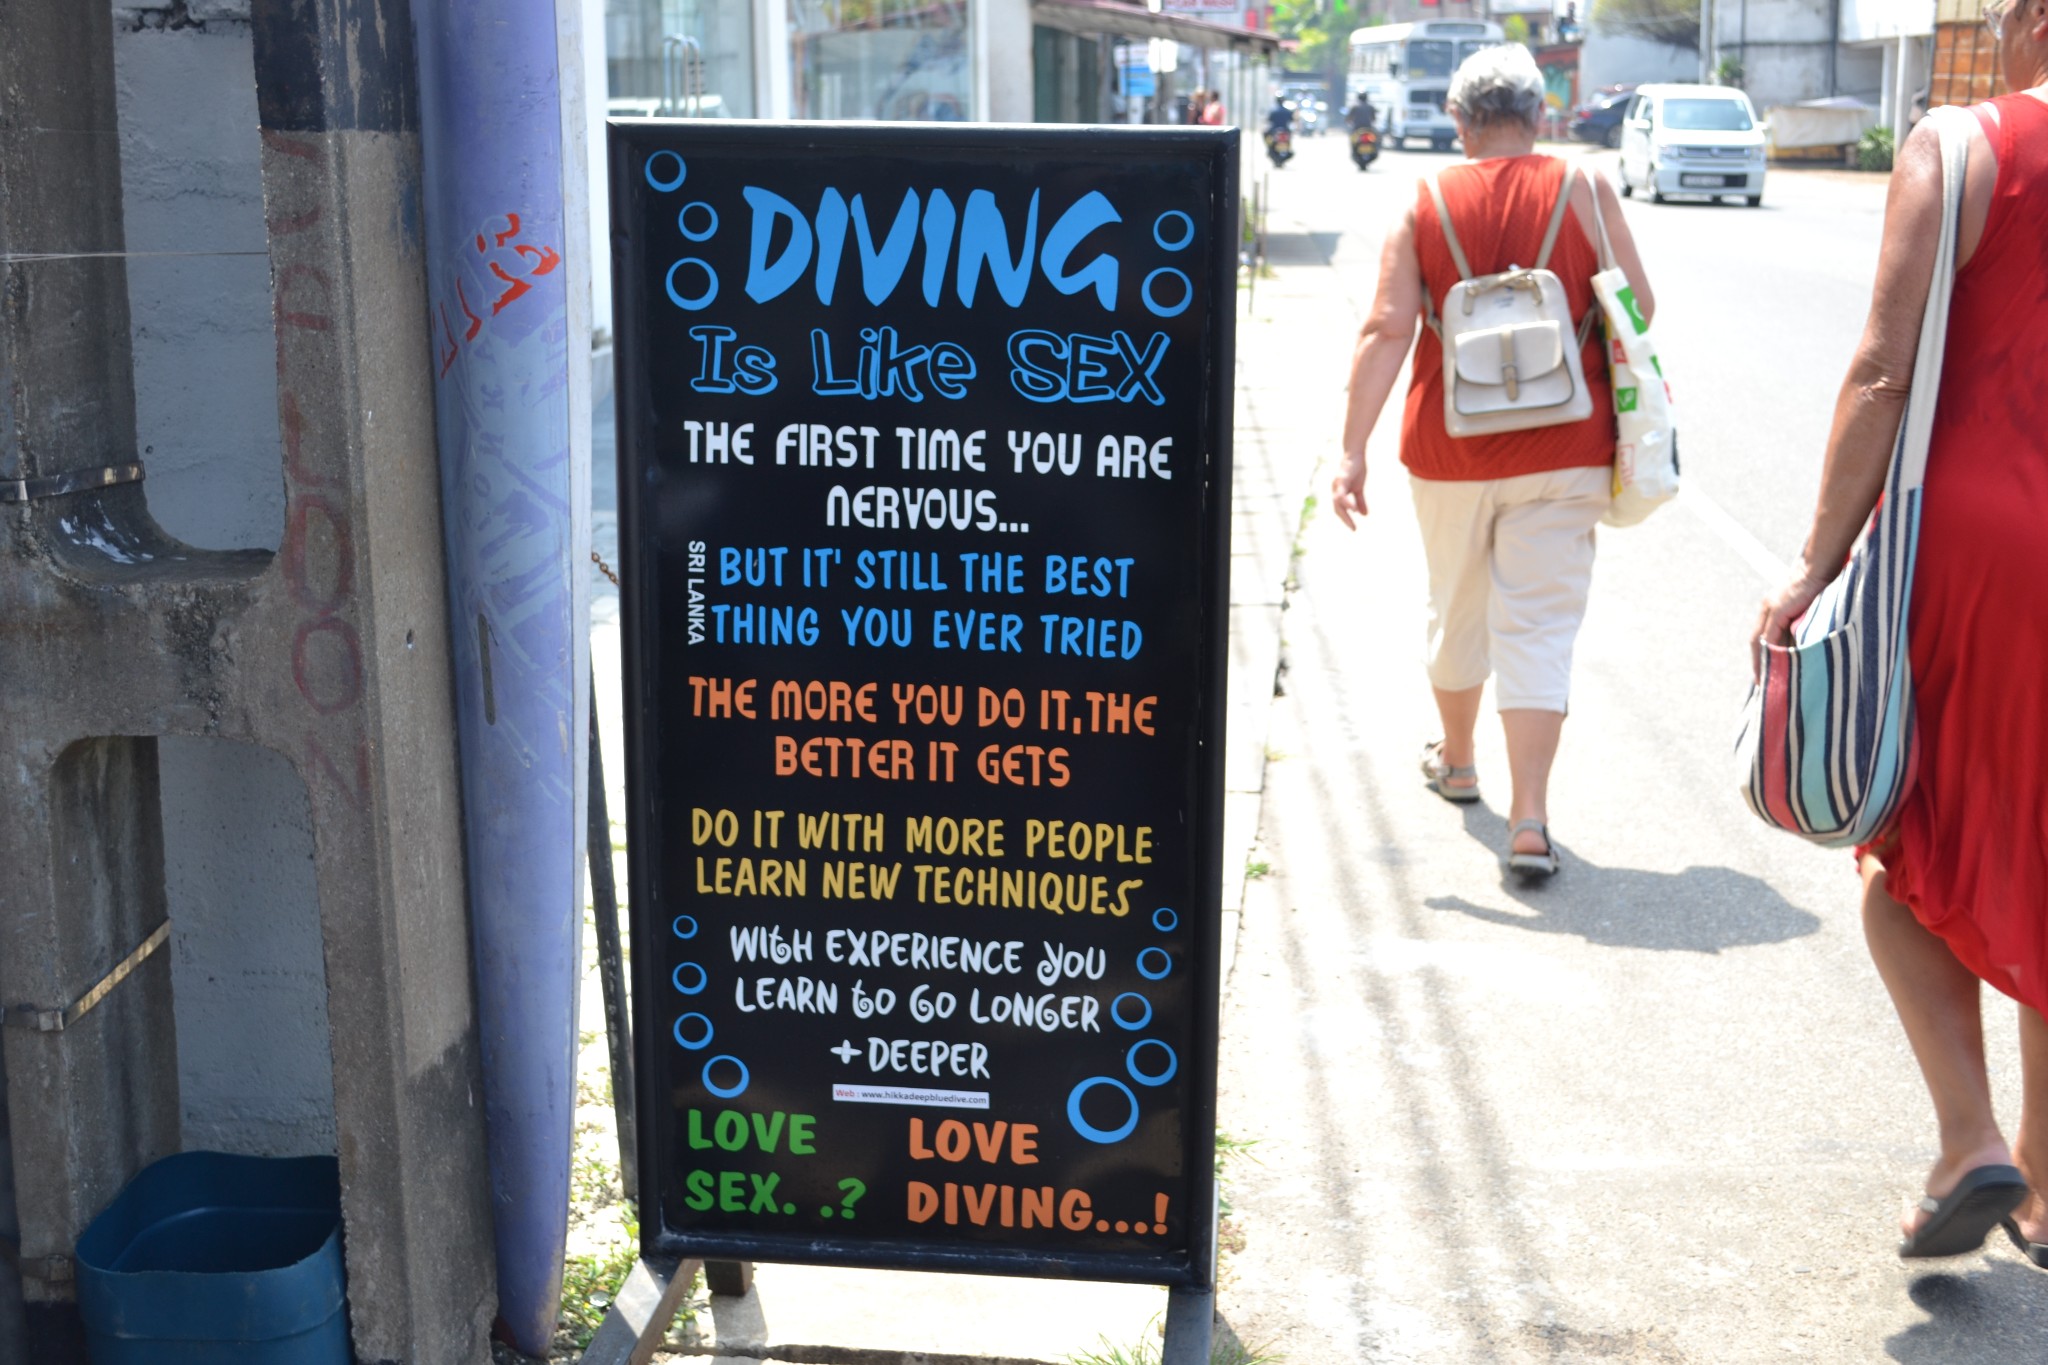 DIVING
Is Like SEX
THE FIRST TIME YOU ARE
NERVOUS...
SRI LANKA
BUT IT' STILL THE BEST
THING YOU EVER TRIED
THE MORE YOU DO IT, THE
BETTER IT GETS
DO IT WITH MORE PEOPLE
LEARN NEW TECHNIQUES
WITH EXPERIENCE YOU
LEARN to GO LONGER
+ DEEPER
Web : www.hikkadeepbluedive.com
LOVE LOVE
SEX. .? DIVING...!